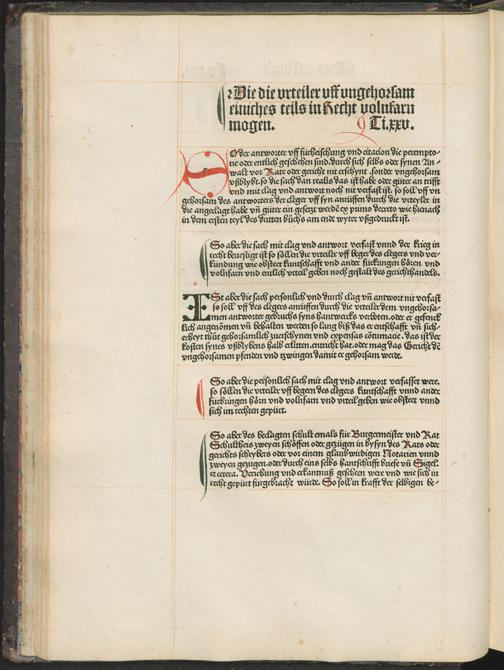 Wie die vrteiler vff vngehorsam
einiches teils in Recht volnfarn
mogen. Ti.xxv.
SO der antworter vff fürheischung vnd citacion die perempto-
rie oder entlich geschehen sind. durch sich selbs oder synen An-
walt vor Rate oder gericht nit erschynt. sonder vngehorsam
vßblybt. so die sach dan realis das ist habe oder güter an trifft
vnd mit clag vnd antwort noch nit verfast ist. so soll vff vn
gehorsam des antworters der cleger vff syn anrüffen durch die vrteyler in
die angeclagt habe vn̄ güter ein gesetzt werdē ex primo decreto wie hienach
in dem ersten teyl des dritten büchs am ende wyter vßgedruckt ist.
So aber die sach mit clag vnd antwort verfast vnnd der krieg in
recht beuestigt ist so söllen die vrteiler vff beger des clegers vnd ver-
kündung wie obstet kuntschafft vnd ander fürkungen hören vnd
volnfarn vnd entlich vrteil geben noch gestalt des gerichthandels.
ISt aber die sach personlich vnd durch clag vn̄ antwort nit verfast
so soll vff des clegers anrüffen durch die vrteiler dem vngehorsa-
men antworter gebruchs syns hantwercks verboten. oder er gefenck
lich angenōmen vn̄ behalten werden so lang biß das er entschafft vn̄ sich-
erheyt thüt gehorsamlich zuerschynen vnd expensas cōtumacie. das ist der
kosten synes vßblybens halb erlitten. entricht hat. oder mag das Gericht dē
vngehorsamen pfenden vnd zwingen damit er gehorsam werde.
So aber die personlich sach mit clag vnd antwort verfasset were.
so söllen die vrteiler vff begern des clegers kuntschafft vnnd ander
fürbringen hörn vnd volnfarn vnd vrteil geben wie obstett vnnd
sich im rechten gepürt.
So aber des beclagten schult emals für Burgermeister vnd Rat
Schultheis zweyen schöffen oder gezügen in bysyn des Rats oder
gerichts schrybers oder vor einem glaubwirdigen Notarien vnnd
zweyen gezugen. oder durch eins selbs hantschrifft briefe vn̄ Sigel.
et cetera. Verichung vnd erkantnuß gescheen were vnd wie sich in
recht gepürt fürgebracht würde. So soll in krafft der selbigen be-